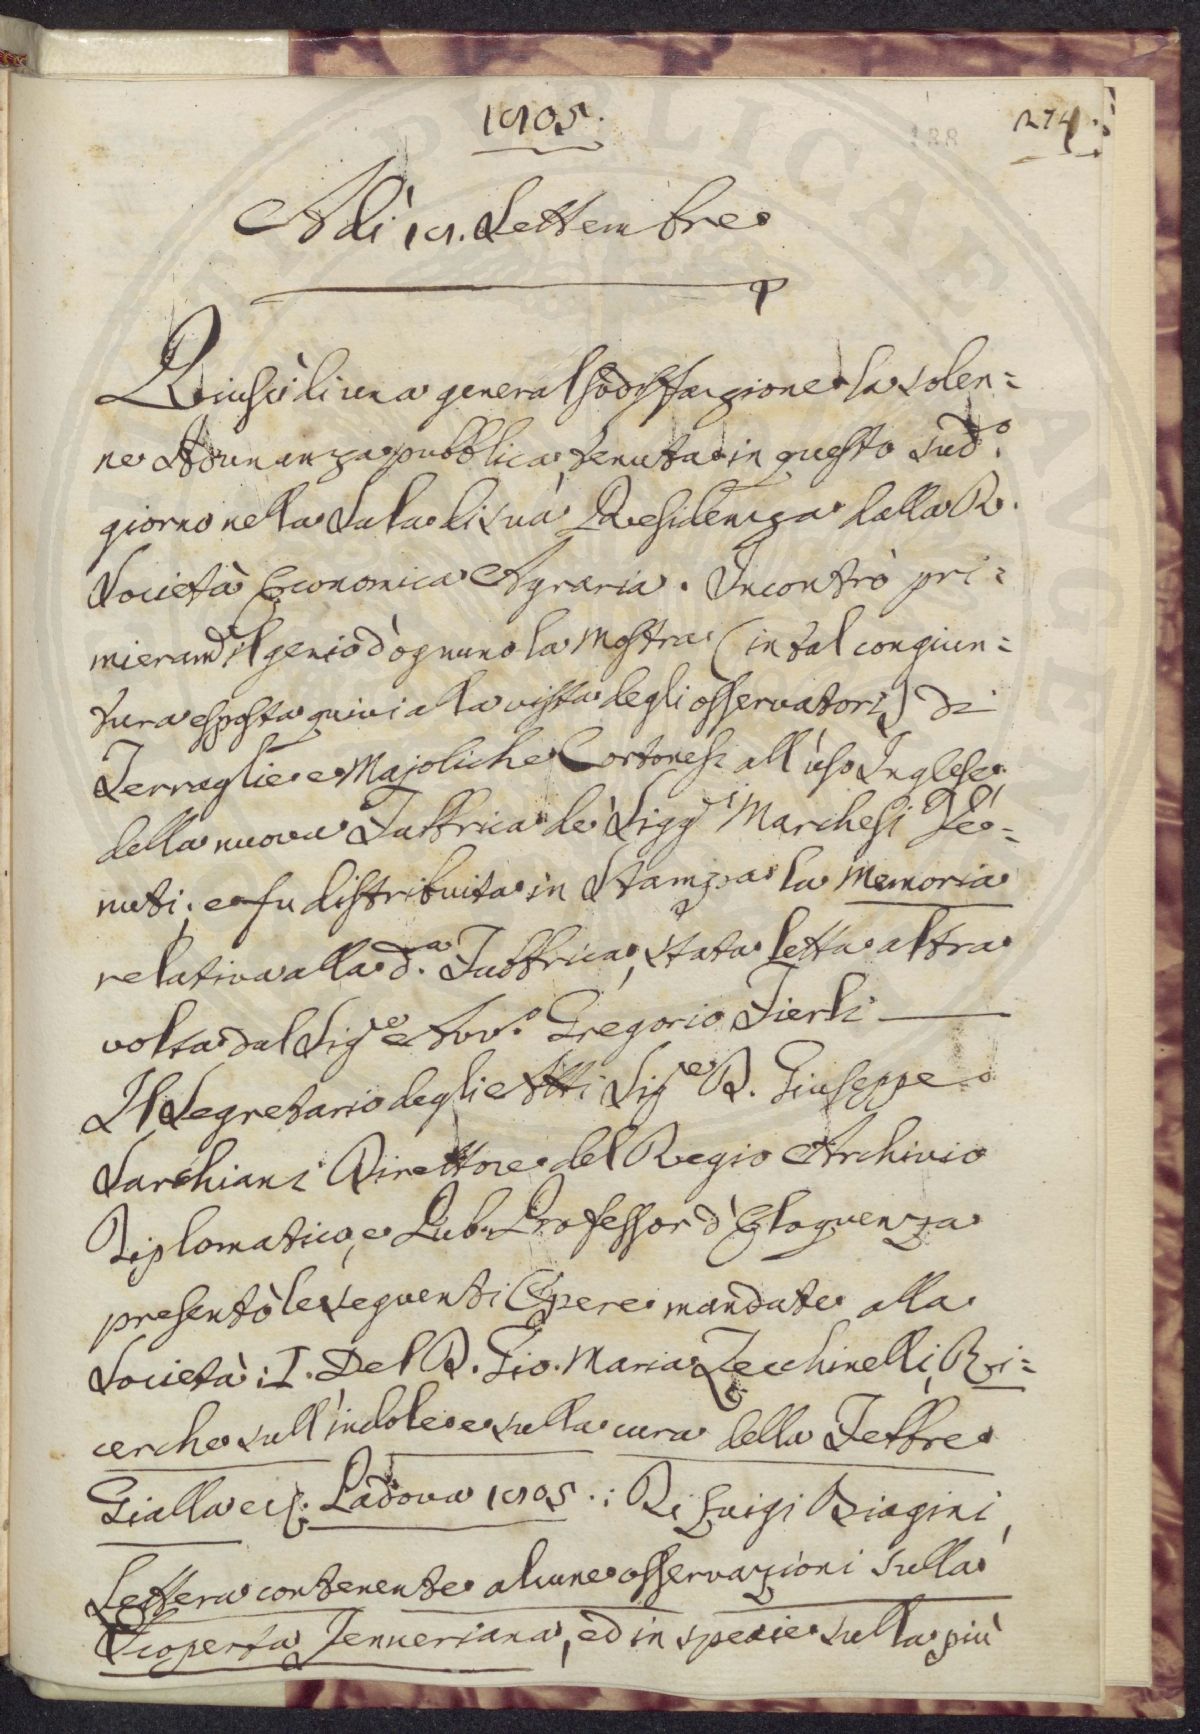 1805.
274.
188
Adì 18. Settembre
Riuscì di una general sodisfazione la solen=
ne Adunanza pubblica, tenuta in questo sud.º
giorno nella Sala di sua Residenza dalla R.
Società Economica Agraria. Incontrò pri=
mieram.e il genio d'ognuno la Mostra (in tal congiun=
tura esposta quivi alla vista degli osservatori) di
Terraglie e Majoliche Cortonesi all'uso Inglese
della nuova Fabbrica de' Sigg.i Marchesi Ve=
nuti; e fu distribuita in Stampa la Memoria
relativa alla d.a Fabbrica, stata letta altra
volta dal Sig.e Avv.º Gregorio Fierli
Il Segretario degli Atti Sig.e D. Giuseppe
Sarchiani Direttore del Regio Archivio
Diplomatico, e Pub. Professor d'Eloquenza
presentò le seguenti Opere mandate alla
Società: I. Del D. Gio. Maria Zecchinelli, Ri=
cerche sull'indole e sulla cura della Febbre
Gialla ec. Padova 1805.: Di Luigi Biagini,
Lettera contenente alcune osservazioni sulla
Scoperta Jenneriana, ed in specie sulla più